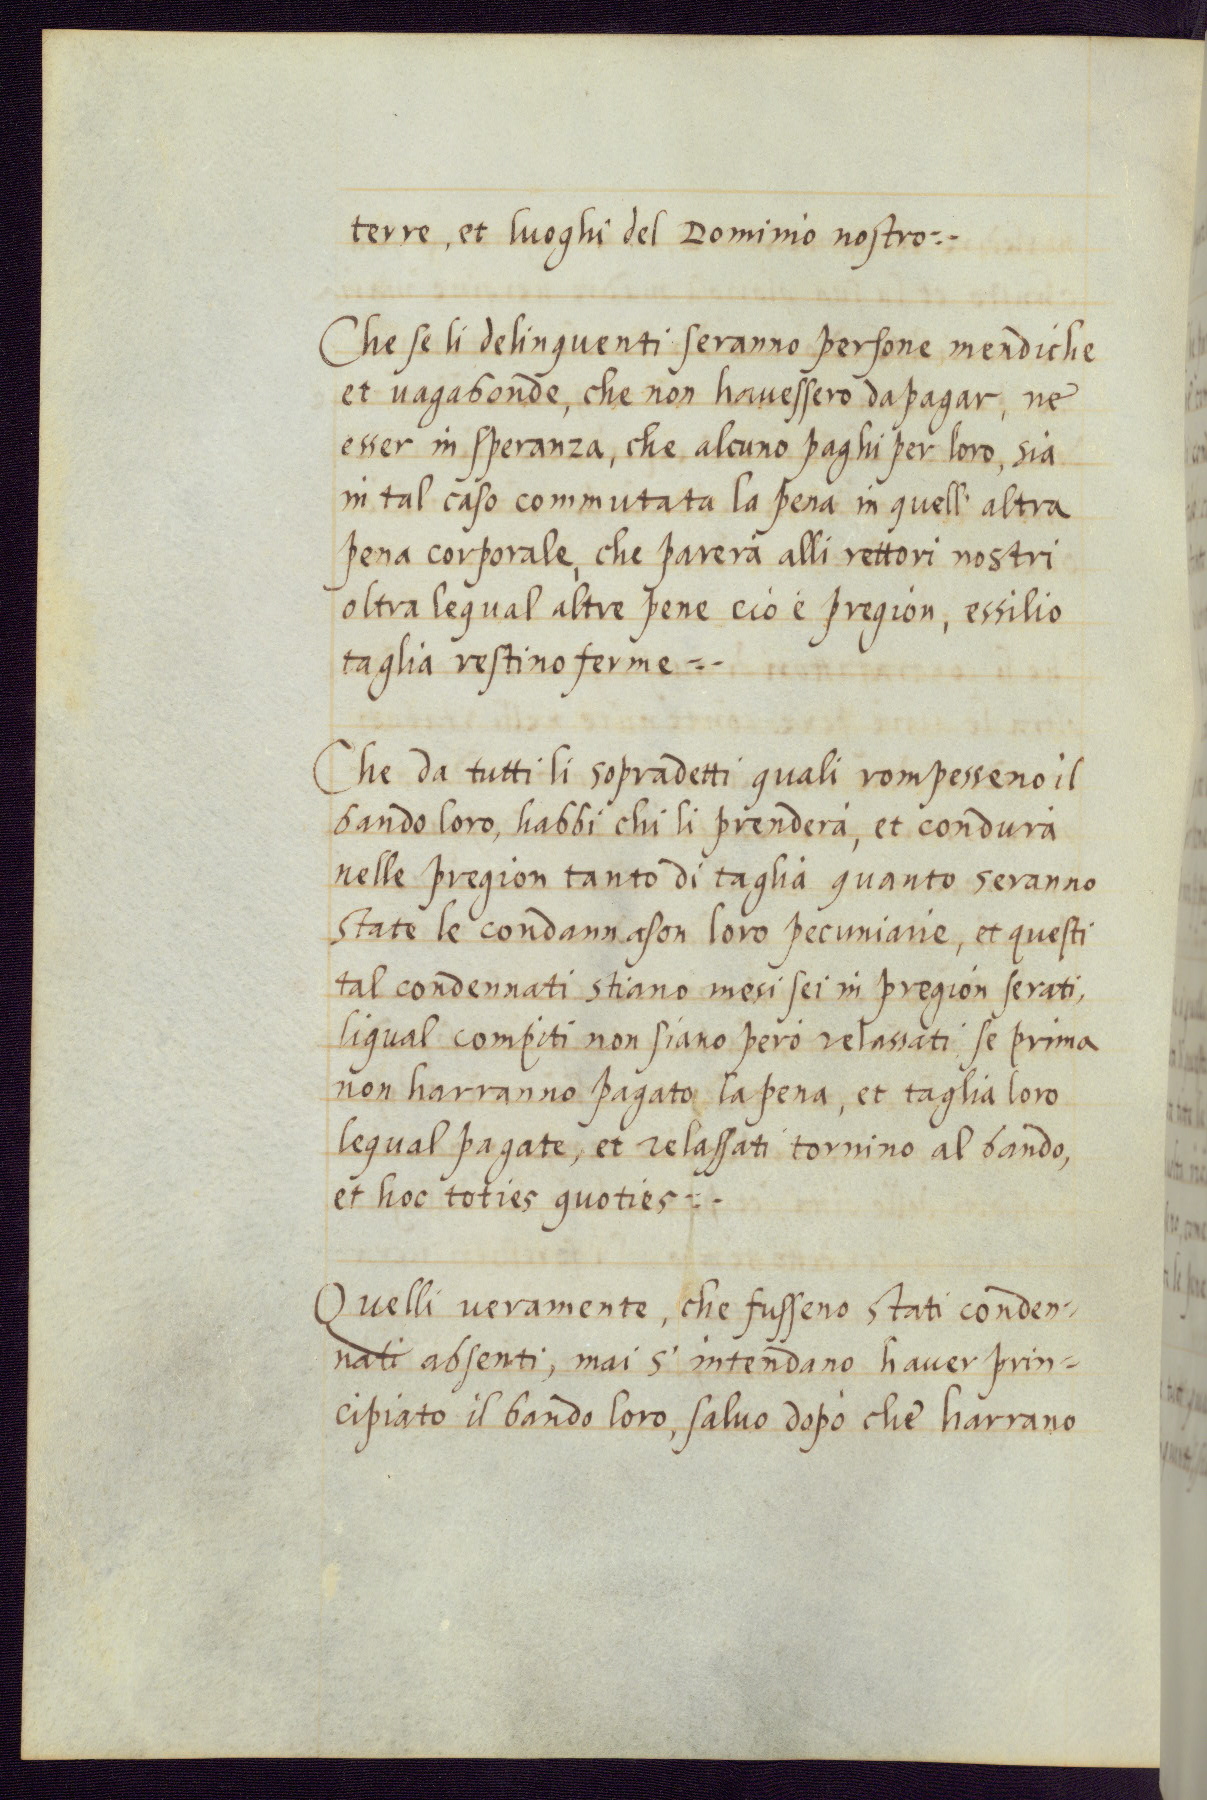 terre, et luoghi del Dominio nostro=-
Che se li delinquenti seranno persone mendiche
et uagabonde, che non hauessero da pagar, ne
esser in speranza, che alcuno paghi per loro, sia
in tal caso commutata la pena in quell' altra
pena corporale, che parerà alli rettori nostri
oltra lequal altre pene ciò è pregion, essilio
taglia restino ferme =-
Che da tutti li sopradetti quali rompesseno il
bando loro, habbi chi li prenderà, et condurà
nelle pregion tanto di taglia quanto seranno
state le condannason loro pecuniarie, et questi
tal condennati stiano mesi sei in pregion serati,
liqual compiti non siano però relassati, se prima
non harranno pagato la pena, et taglia loro
lequal pagate, et relassati tornino al bando,
et hoc toties quoties=-
Quelli ueramente, che fusseno stati conden-
nati absenti, mai s' intendano hauer prin=
cipiato il bando loro, saluo dopò che harrano